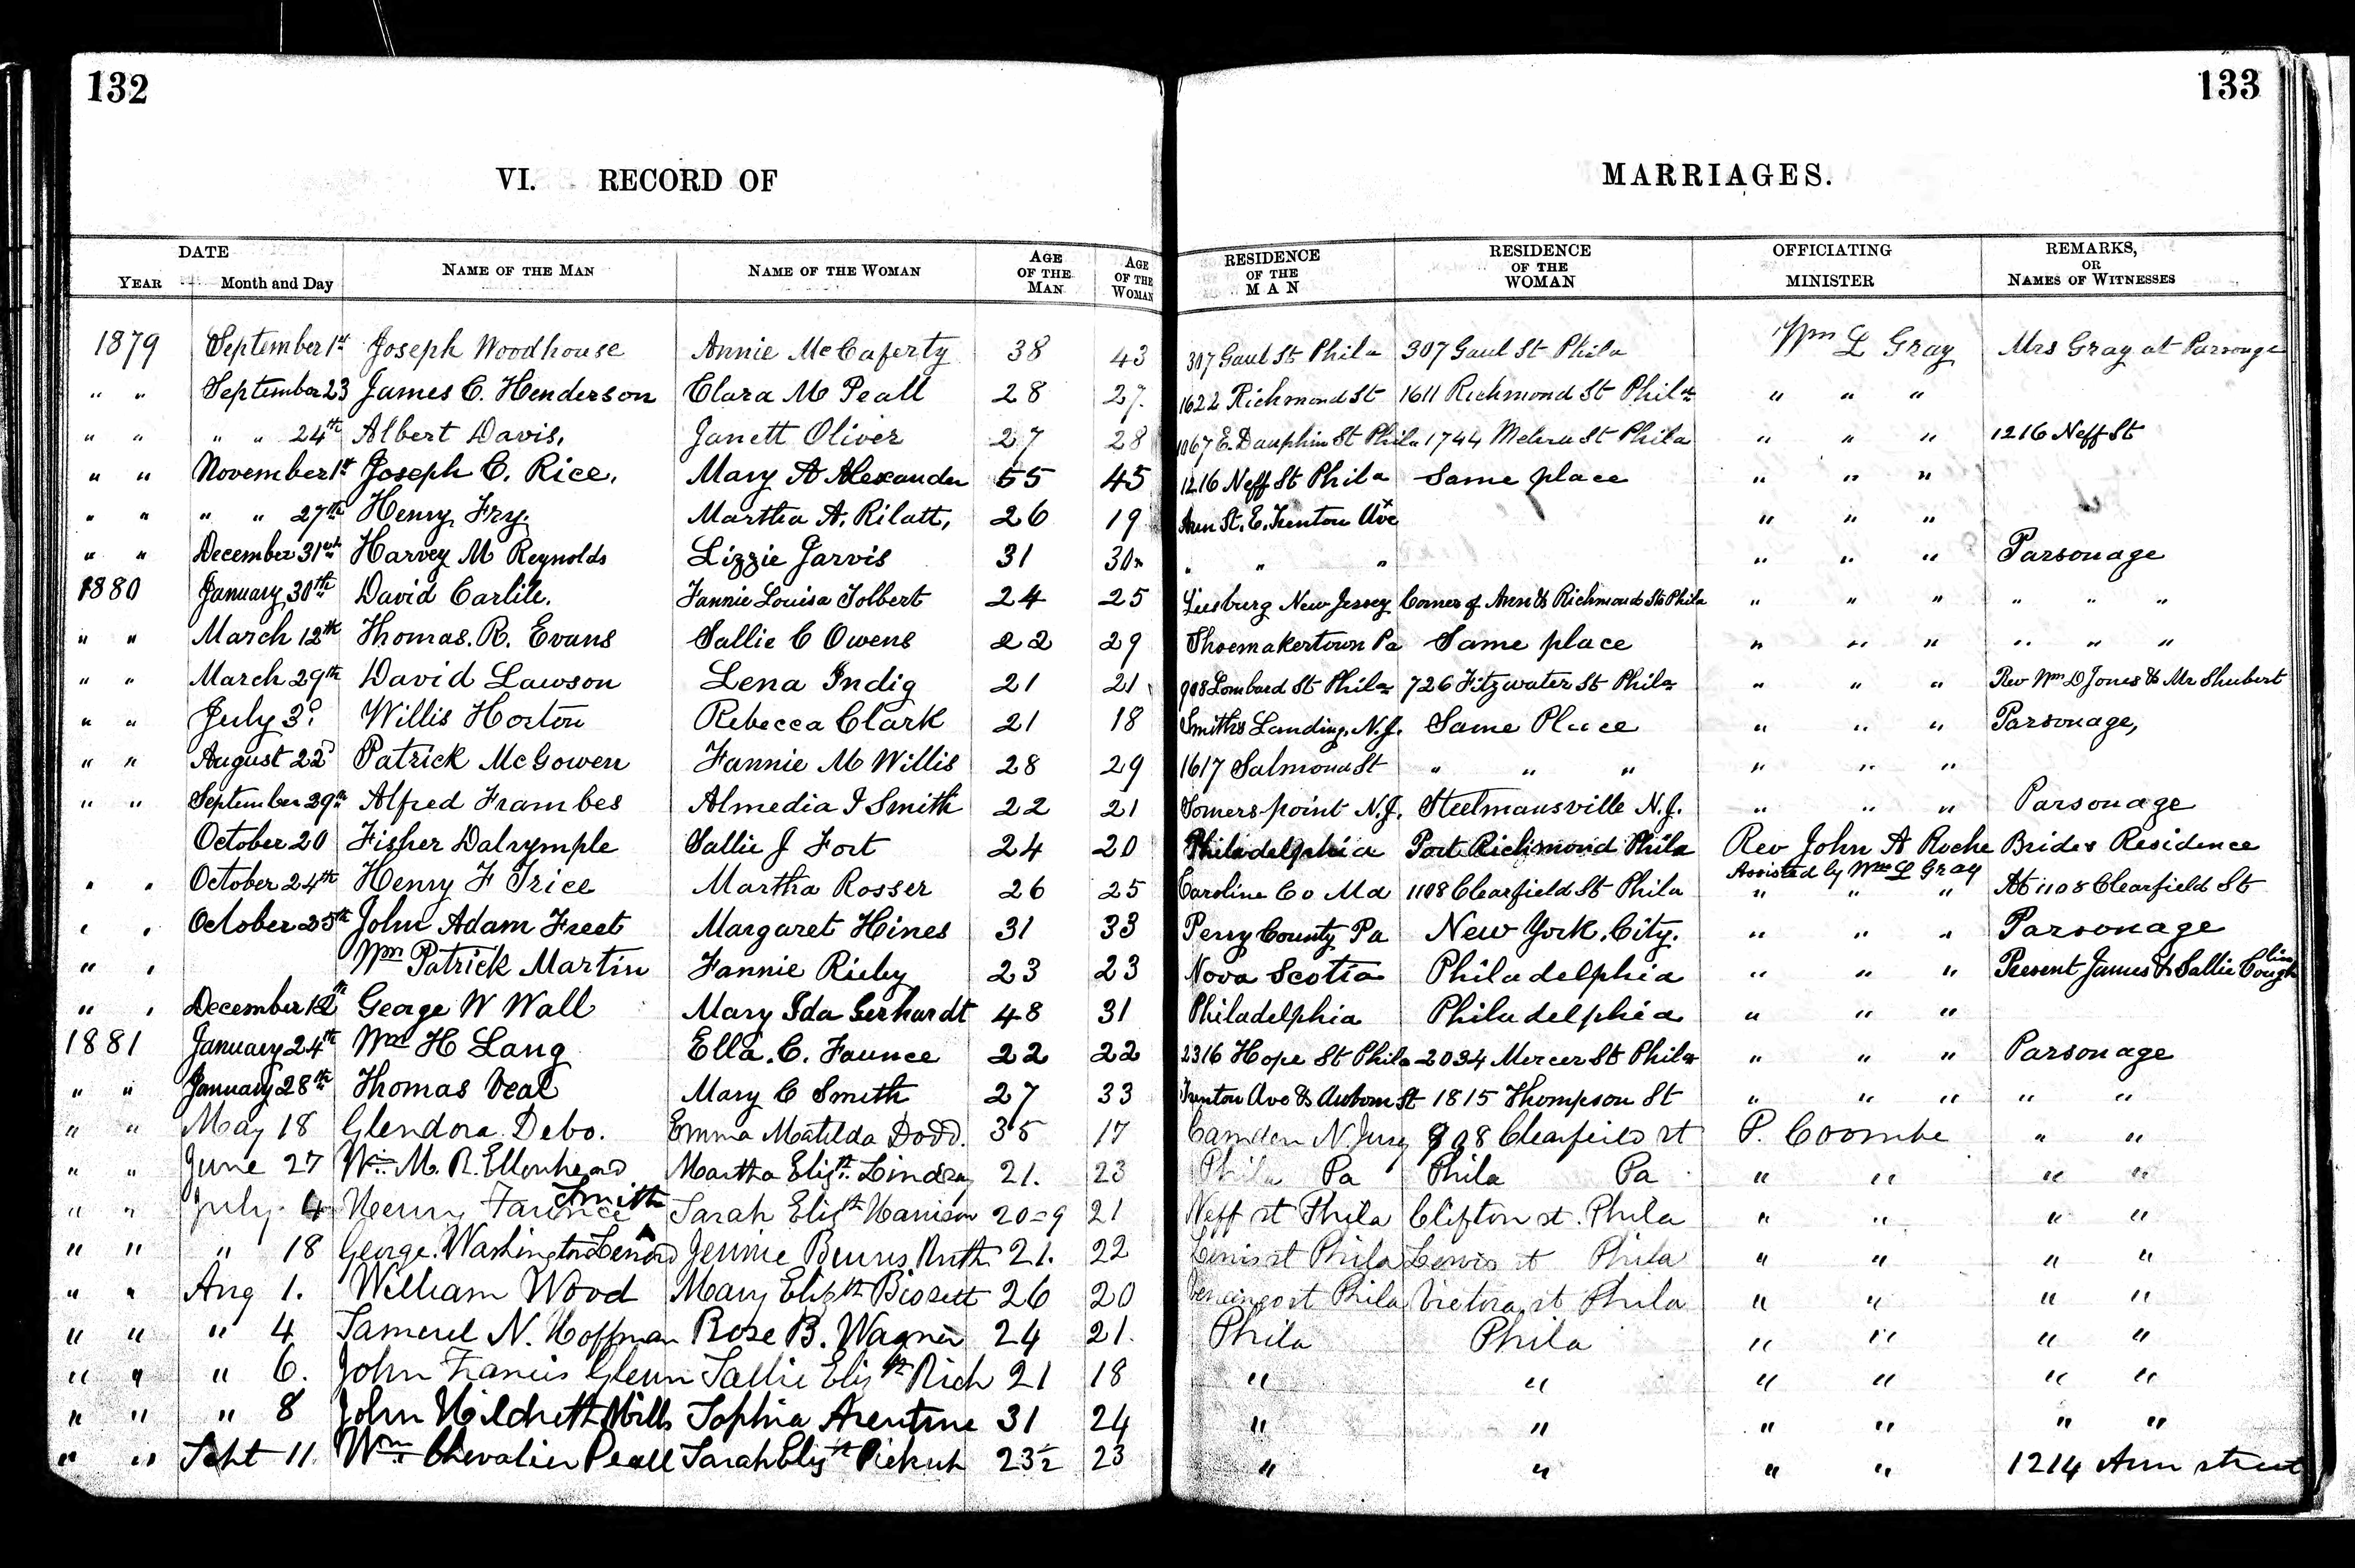 132
133
VI. RECORD OF
MARRIAGES.
DATE
YEAR Month and Day NAME OF THE MAN NAME OF THE WOMAN AGE OF THE MAN AGE OF THE WOMAN RESIDENCE OF THE MAN RESIDENCE OF THE WOMAN OFFICIATING MINISTER REMARKS, OR NAMES OF WITNESSES
1879 September 1st Joseph Woodhouse Annie McCaferty 38 43 307 Gaul St Phila 307 Gaul St Phila Wm L Gray Mrs Gray at Parsonage
" " September 23 James C. Henderson Clara M Peall 28 27. 1622 Richmond St 1611 Richmond St Phila " " "
" " " " 24th Albert Davis, Janett Oliver 27 28 1067 E. Dauphin St Phila 1744 St Phila " " " 1216 Neff St
" " November 1st Joseph C. Rice. Mary A Alexander 55 45 1216 Neff St Phila Same place " " "
" " " " 27th Henry Fry. Martha A. Rilatt, 26 19 Ann St. E. Trenton Ave " " "
" " December 31st Harvey M Reynolds Lizzie Jarvis 31 30 " " " " " " Parsonage
1880 January 30th David Carlile. Fannie Louisa Tolbert 24 25 Leesburg New Jersey Corner of Ann & Richmond Sts Phila " " " " " "
" " March 12th Thomas. R. Evans Sallie C Owens 22 29 Shoemakertown Pa Same place " " " " " "
" " March 29th David Lawson Lena Indig 21 21 908 Lombard St Phila 726 Fitzwater St Phila " " " Rev Wm D Jones & Mr Shubert
" " July 3d. Willis Horton Rebecca Clark 21 18 Smiths Landing. N.J. Same Place " " " Parsonage,
" " August 22d Patrick McGowen Fannie M Willis 28 29 1617 Salmond St " " " " " "
" " September 29th Alfred Frambes Almedia I Smith 22 21 Somers point N.J. Steelmansville N.J. " " " Parsonage
October 20 Fisher Dalrymple Sallie J Fort 24 20 Philadelphia Port Richmond Phila Rev John A Roche Brides Residence
Assisted by Wm L Gray
" " October 24th Henry F Trice Martha Rosser 26 25 Caroline Co Md 1108 Clearfield St Phila " " " At 1108 Clearfield St
" " October 25th John Adam Freet Margaret Hines 31 33 Perry County Pa New York. City. " " " Parsonage
" " Wm Patrick Martin Fannie Rieby 23 23 Nova Scotia Philadelphia " " " Present James & Sallie Coughlin
" " December 12th George W Wall Mary Ida Gerhardt 48 31 Philadelphia Philadelphia " " "
1881 January 24th Wm H Lang Ella. C. Faunce 22 22 2316 Hope St Phila 2034 Mercer St Phila " " " Parsonage
" " January 28th Thomas Veal Mary C Smith 27 33 Trenton Ave & Auborn St 1815 Thompson St " " " " "
" " May 18 Glendora Debo. Emma Matilda Dodd. 35 17 Camden N. Jersy 908 Clearfield st P. Coombe " "
" " June 27 Wm. M. R. Ellenhead Martha Elizth. Lindsay 21. 23 Phila Pa Phila Pa " " " "
" " July 4 Henry Faunce Smith Sarah Elizth Harrison 20=9 21 Neff st Phila Clifton st. Phila " " " "
" " " 18 George. Washington Lenard Jennie Ruth 21. 22 Lewis st Phila Lewis st Phila " " " "
" " Aug 1. William Wood Mary Elizth Bissett 26 20 Venango st Phila Victora st Phila " " " "
" " " 4 Samuel N. Hoffman Rose B. Wagner 24 21. Phila Phila " " " "
" " " 6. John Francis Glenn Sallie Elizth Rich 21 18 " " " " " "
" " " 8 John Hildreth Mills Sophia Arentine 31 24 " " " " " "
" " Sept 11. Wm. Chevalier Peall Sarah Elizth 23½ 23 " " " " 1214 Ann street